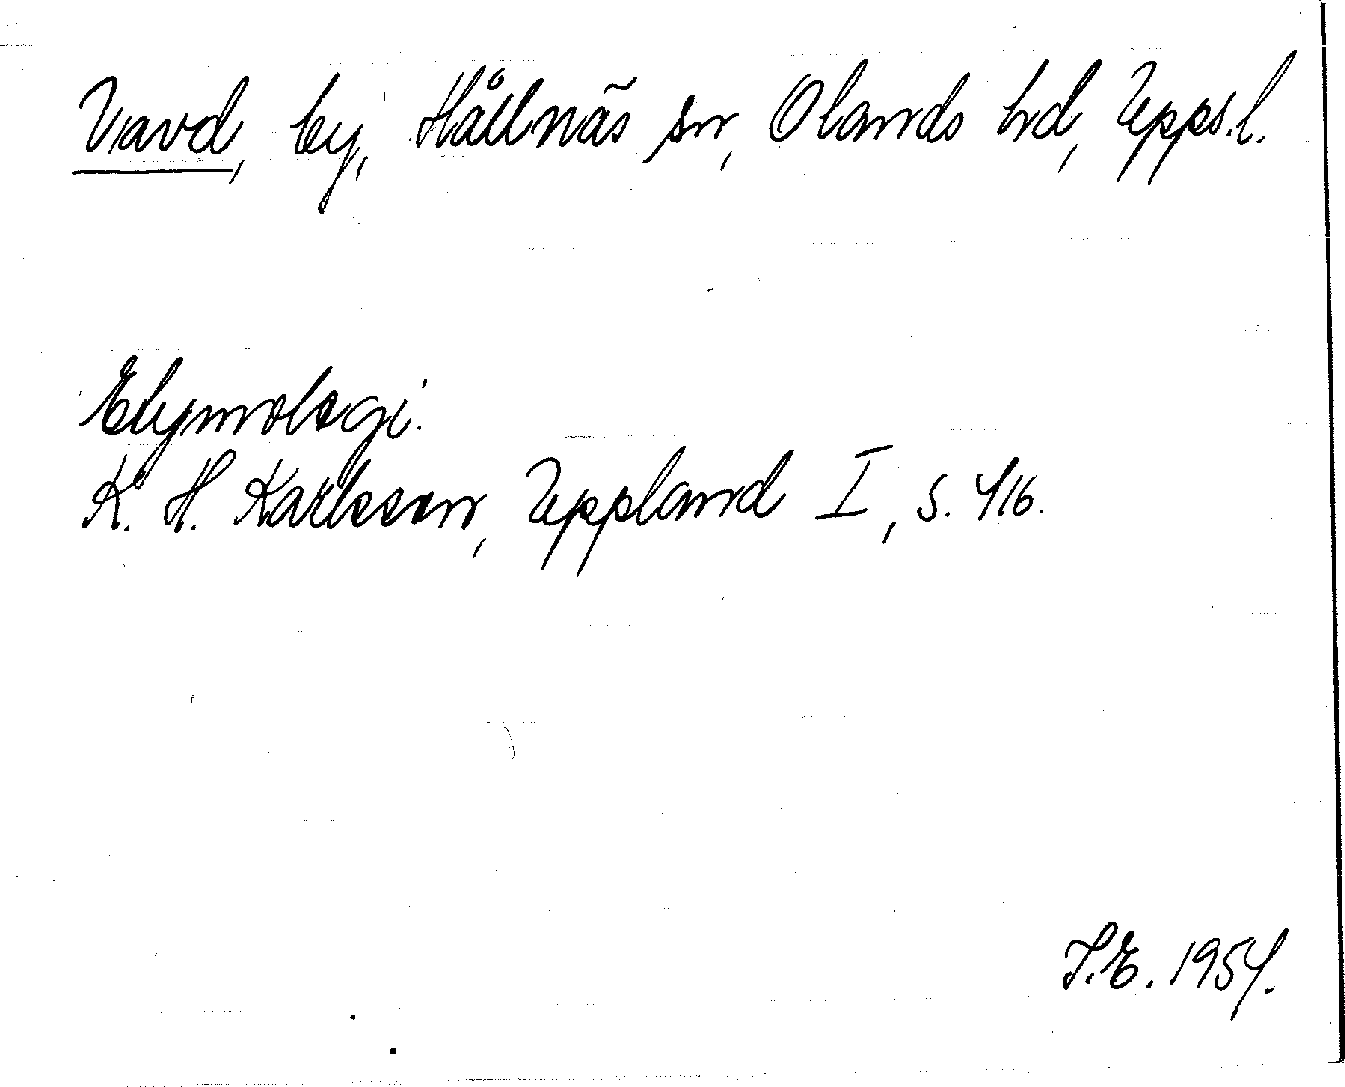 Vavd, by, Hållnäs sn, Olands hd, Upps. l.
Etymologi.
K. H. Karlsson, Uppland I, s. 416.
S.E. 1954.